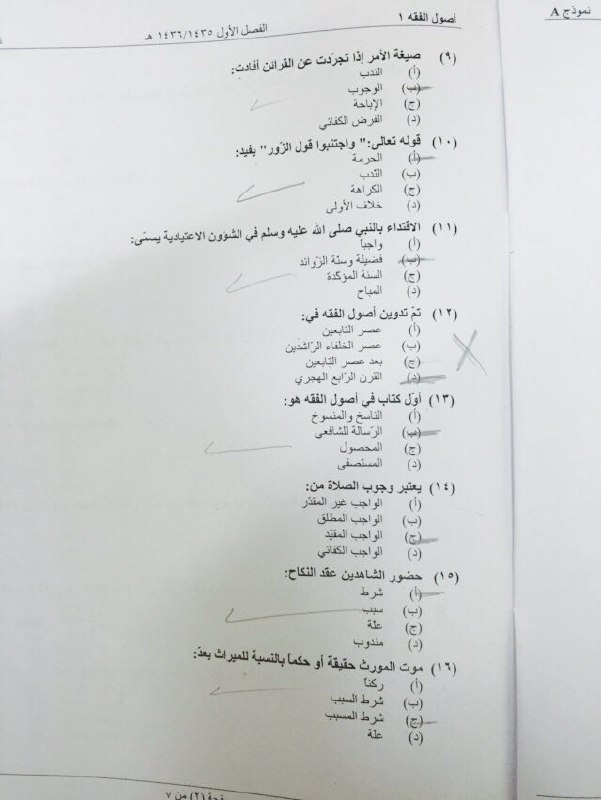 نموذج A
أصول الفقه ١
الفصل الأول ١٤٣٦/١٤٣٥ هـ
(٩) صيغة الأمر إذا تجرّدت عن القرائن أفادت:
(أ) الندب
(ب) الوجوب
(ج) الإباحة
(د) الفرض الكفائي
(١٠) قوله تعالى:" واجتنبوا قول الزّور" يفيد:
(أ) الحرمة
(ب) النّدب
(ج) الكراهة
(د) خلاف الأولى
(١١) الاقتداء بالنبي صلى الله عليه وسلم في الشؤون الاعتيادية يسمّى:
(أ) واجباً
(ب) فضيلة وسنّة الزّوائد
(ج) السنة المؤكّدة
(د) المباح
(١٢) تمّ تدوين أصول الفقه في:
(أ) عصر التابعين
(ب) عصر الخلفاء الرّاشدين
(ج) بعد عصر التابعين
(د) القرن الرّابع الهجري
(١٣) أوّل كتاب في أصول الفقه هو:
(أ) الناسخ والمنسوخ
(ب) الرّسالة للشافعي
(ج) المحصول
(د) المستصفى
(١٤) يعتبر وجوب الصلاة من:
(أ) الواجب غير المقدّر
(ب) الواجب المطلق
(ج) الواجب المقيّد
(د) الواجب الكفائي
(١٥) حضور الشاهدين عقد النكاح:
(أ) شرط
(ب) سبب
(ج) علّة
(د) مندوب
(١٦) موت المورث حقيقة أو حكماً بالنسبة للميراث يعدّ:
(أ) ركناً
(ب) شرط السبب
(ج) شرط المسبب
(د) علة
صفحة (٢) من ٧